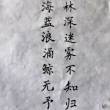 林深迷雾不知归
海蓝浪涌鲸无予